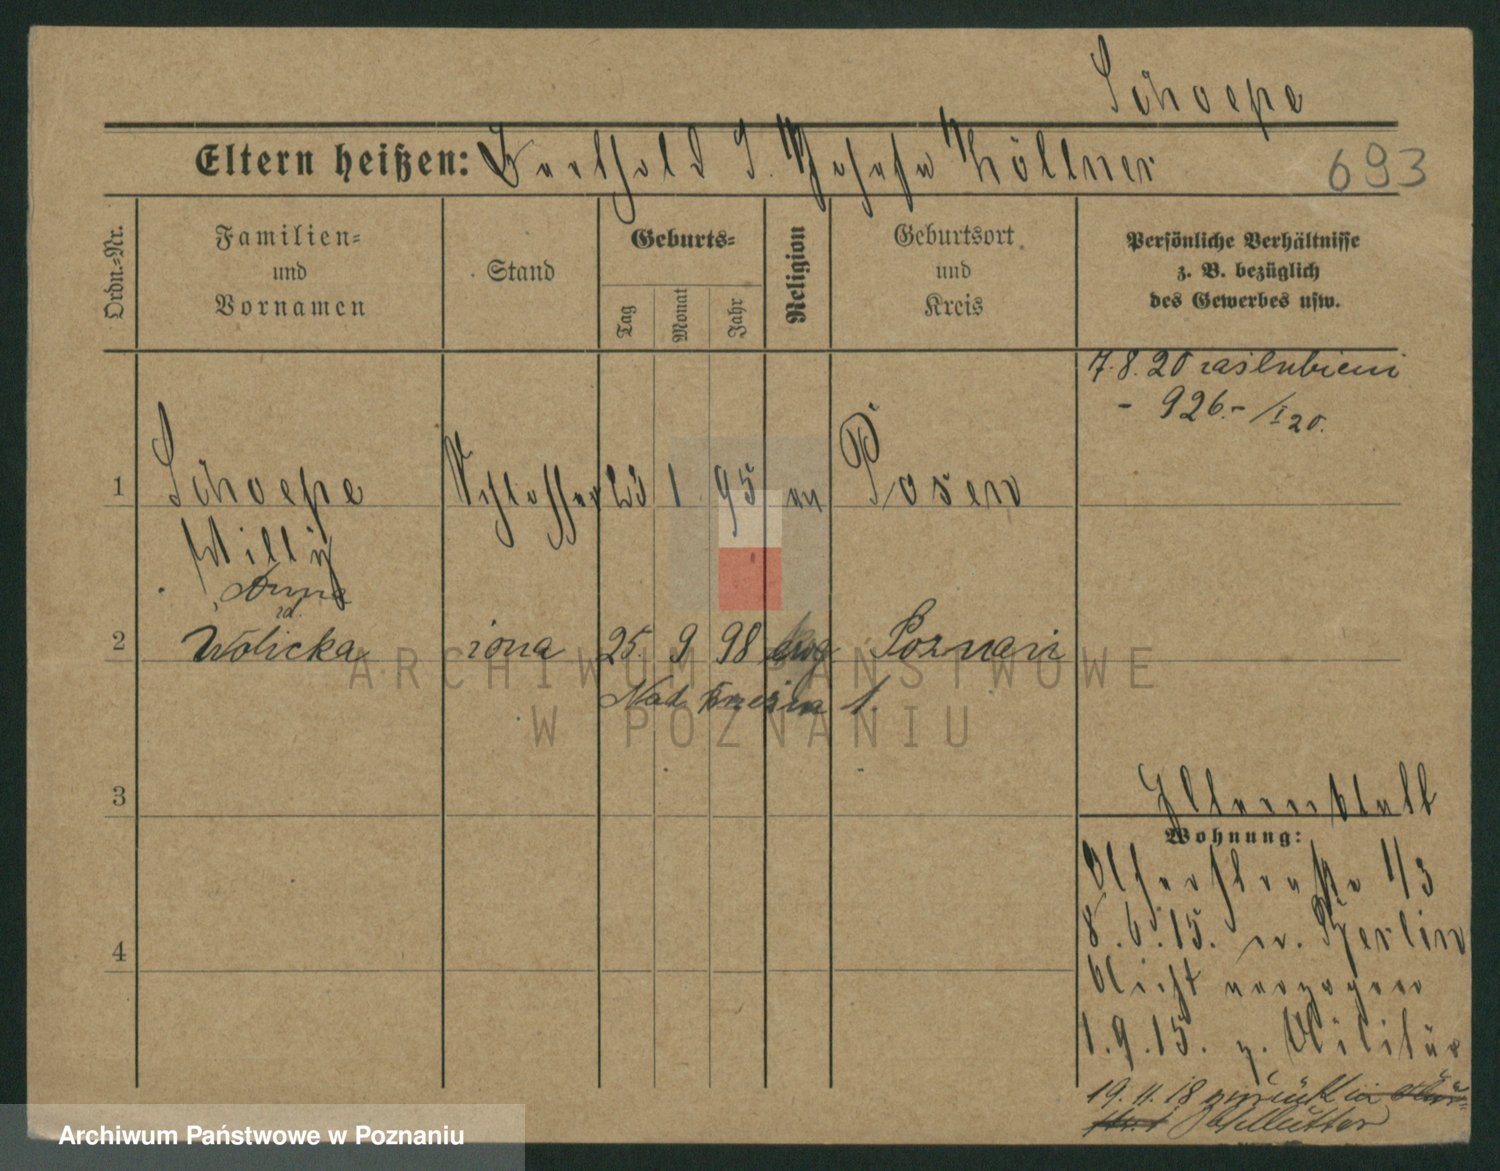 Schoepe
Eltern heißen: Berthold J. Köllner
693
Ordn.-Nr.
Familien-
und
Vornamen
Stand
Geburts-
Tag
Monat
Jahr
Religion
Geburtsort
und
Kreis
Persönliche Verhältnisse
z. B. bezüglich
des Gewerbes usw.
7.8.20 zaślubieni
- 926.- / I 20.
1 Schoepe Schlosser 23 1 95 ev Posen
Willy
Anna
zd.
2 Wolicka żona 25. 9 98 Poznań
1.
3
Elternstell
Wohnung:
1/3
8.6.15. n. Berlin
Nicht verzogen
1.9.15. z. Militär
19.11.18 zurück
b/Mutter
4
ARCHIWUM PAŃSTWOWE
W POZNANIU
Archiwum Państwowe w Poznaniu